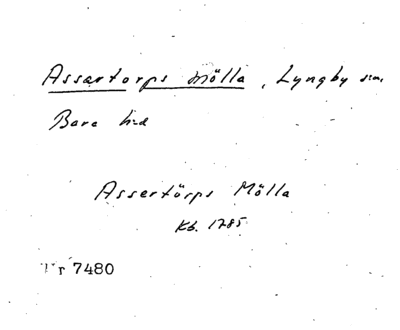 Assartorps mölla, Lyngby sn,
Bara hd
Assertörps Mölla
Kb. 1785
Nr 7480